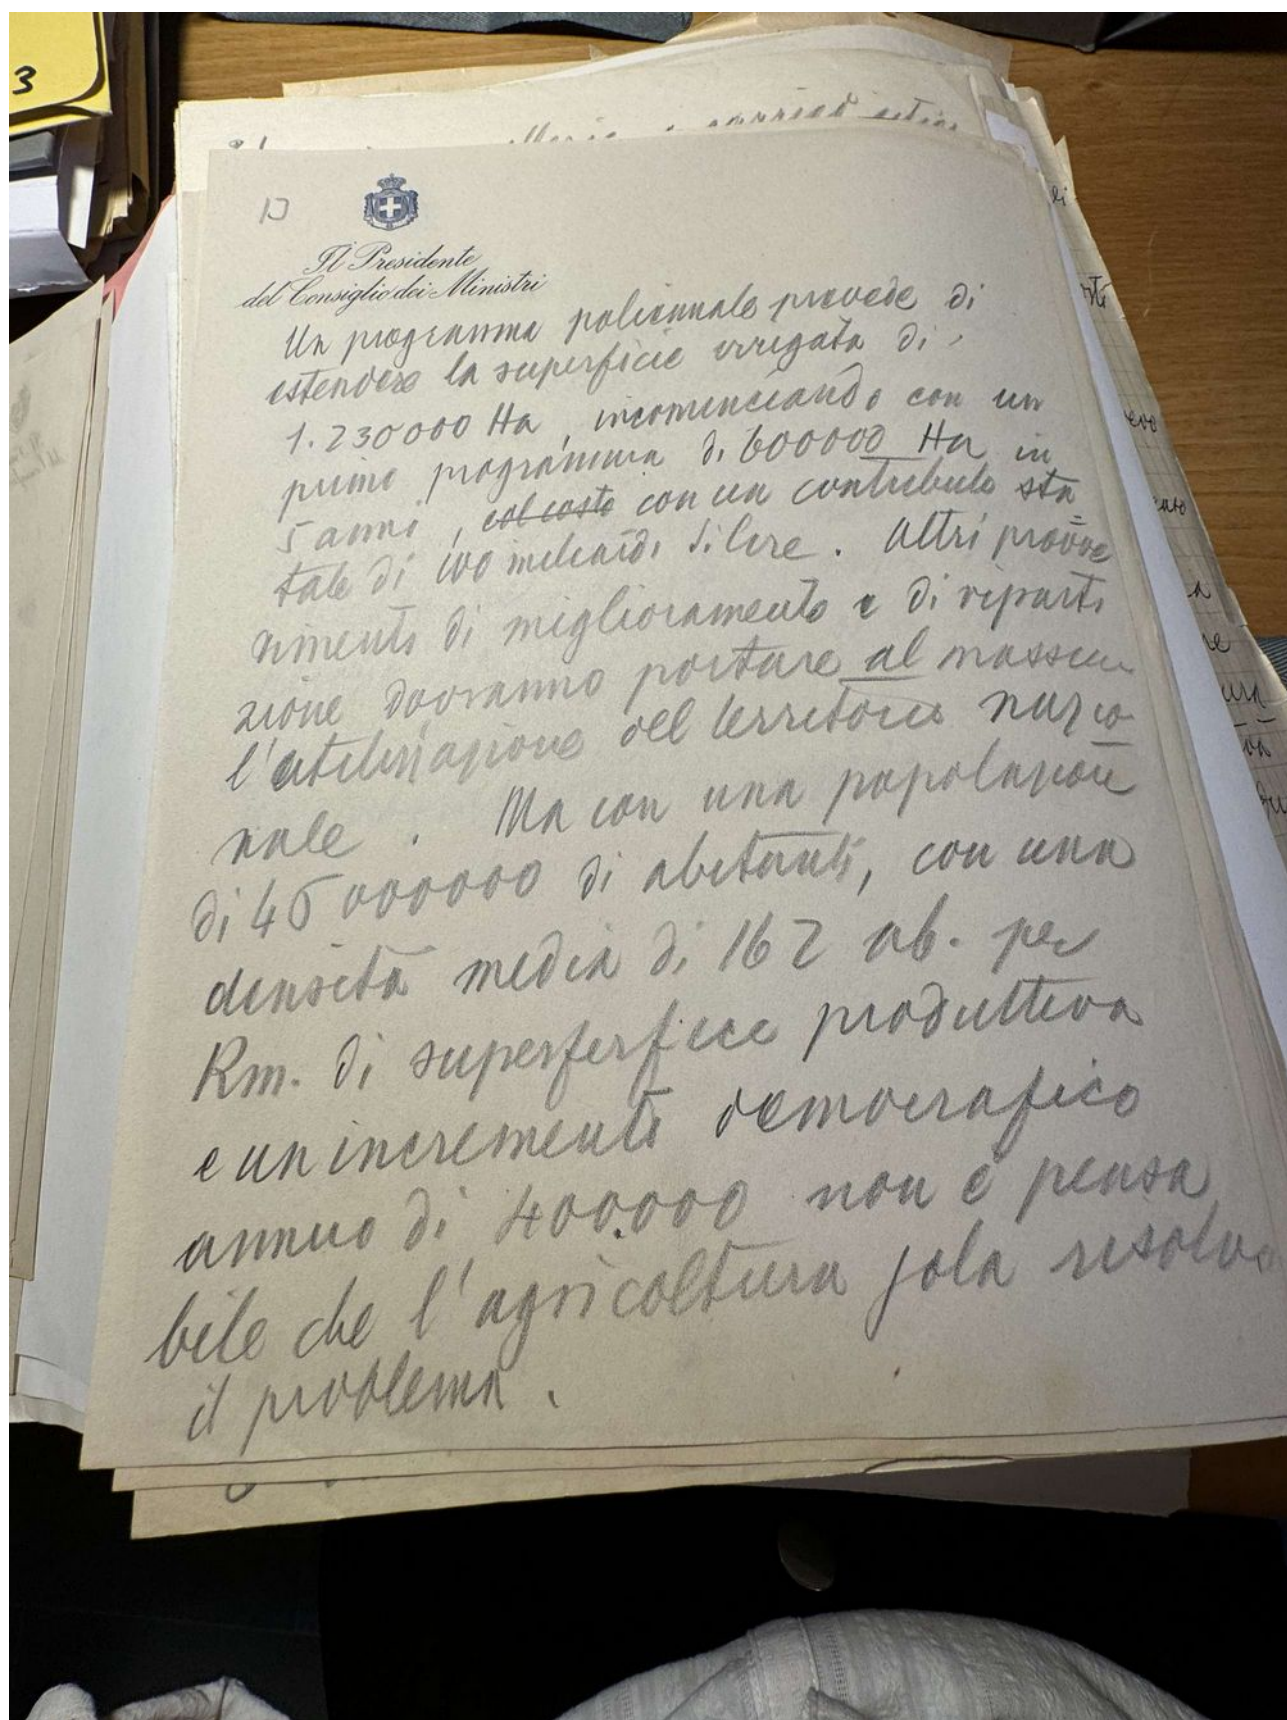 3
13
Il Presidente
del Consiglio dei Ministri
Un programma poliennale prevede di
estendere la superficie irrigata di
1.230000 Ha, incominciando con un
primo programma di 600000 Ha in
5 anni, col costo con un contributo sta
tale di 100 miliardi di lire. Altri provve
dimenti di miglioramento e di riparti
zione dovranno portare al massimo
l'utilizzazione del territorio nazio
nale. Ma con una popolazione
di 46 000000 di abitanti, con una
densità media di 162 ab. per
Km. di superferfice produttiva
e un incremento democrafico
annuo di 400.000 non è pensa
bile che l'agricoltura sola risolva
il problema.